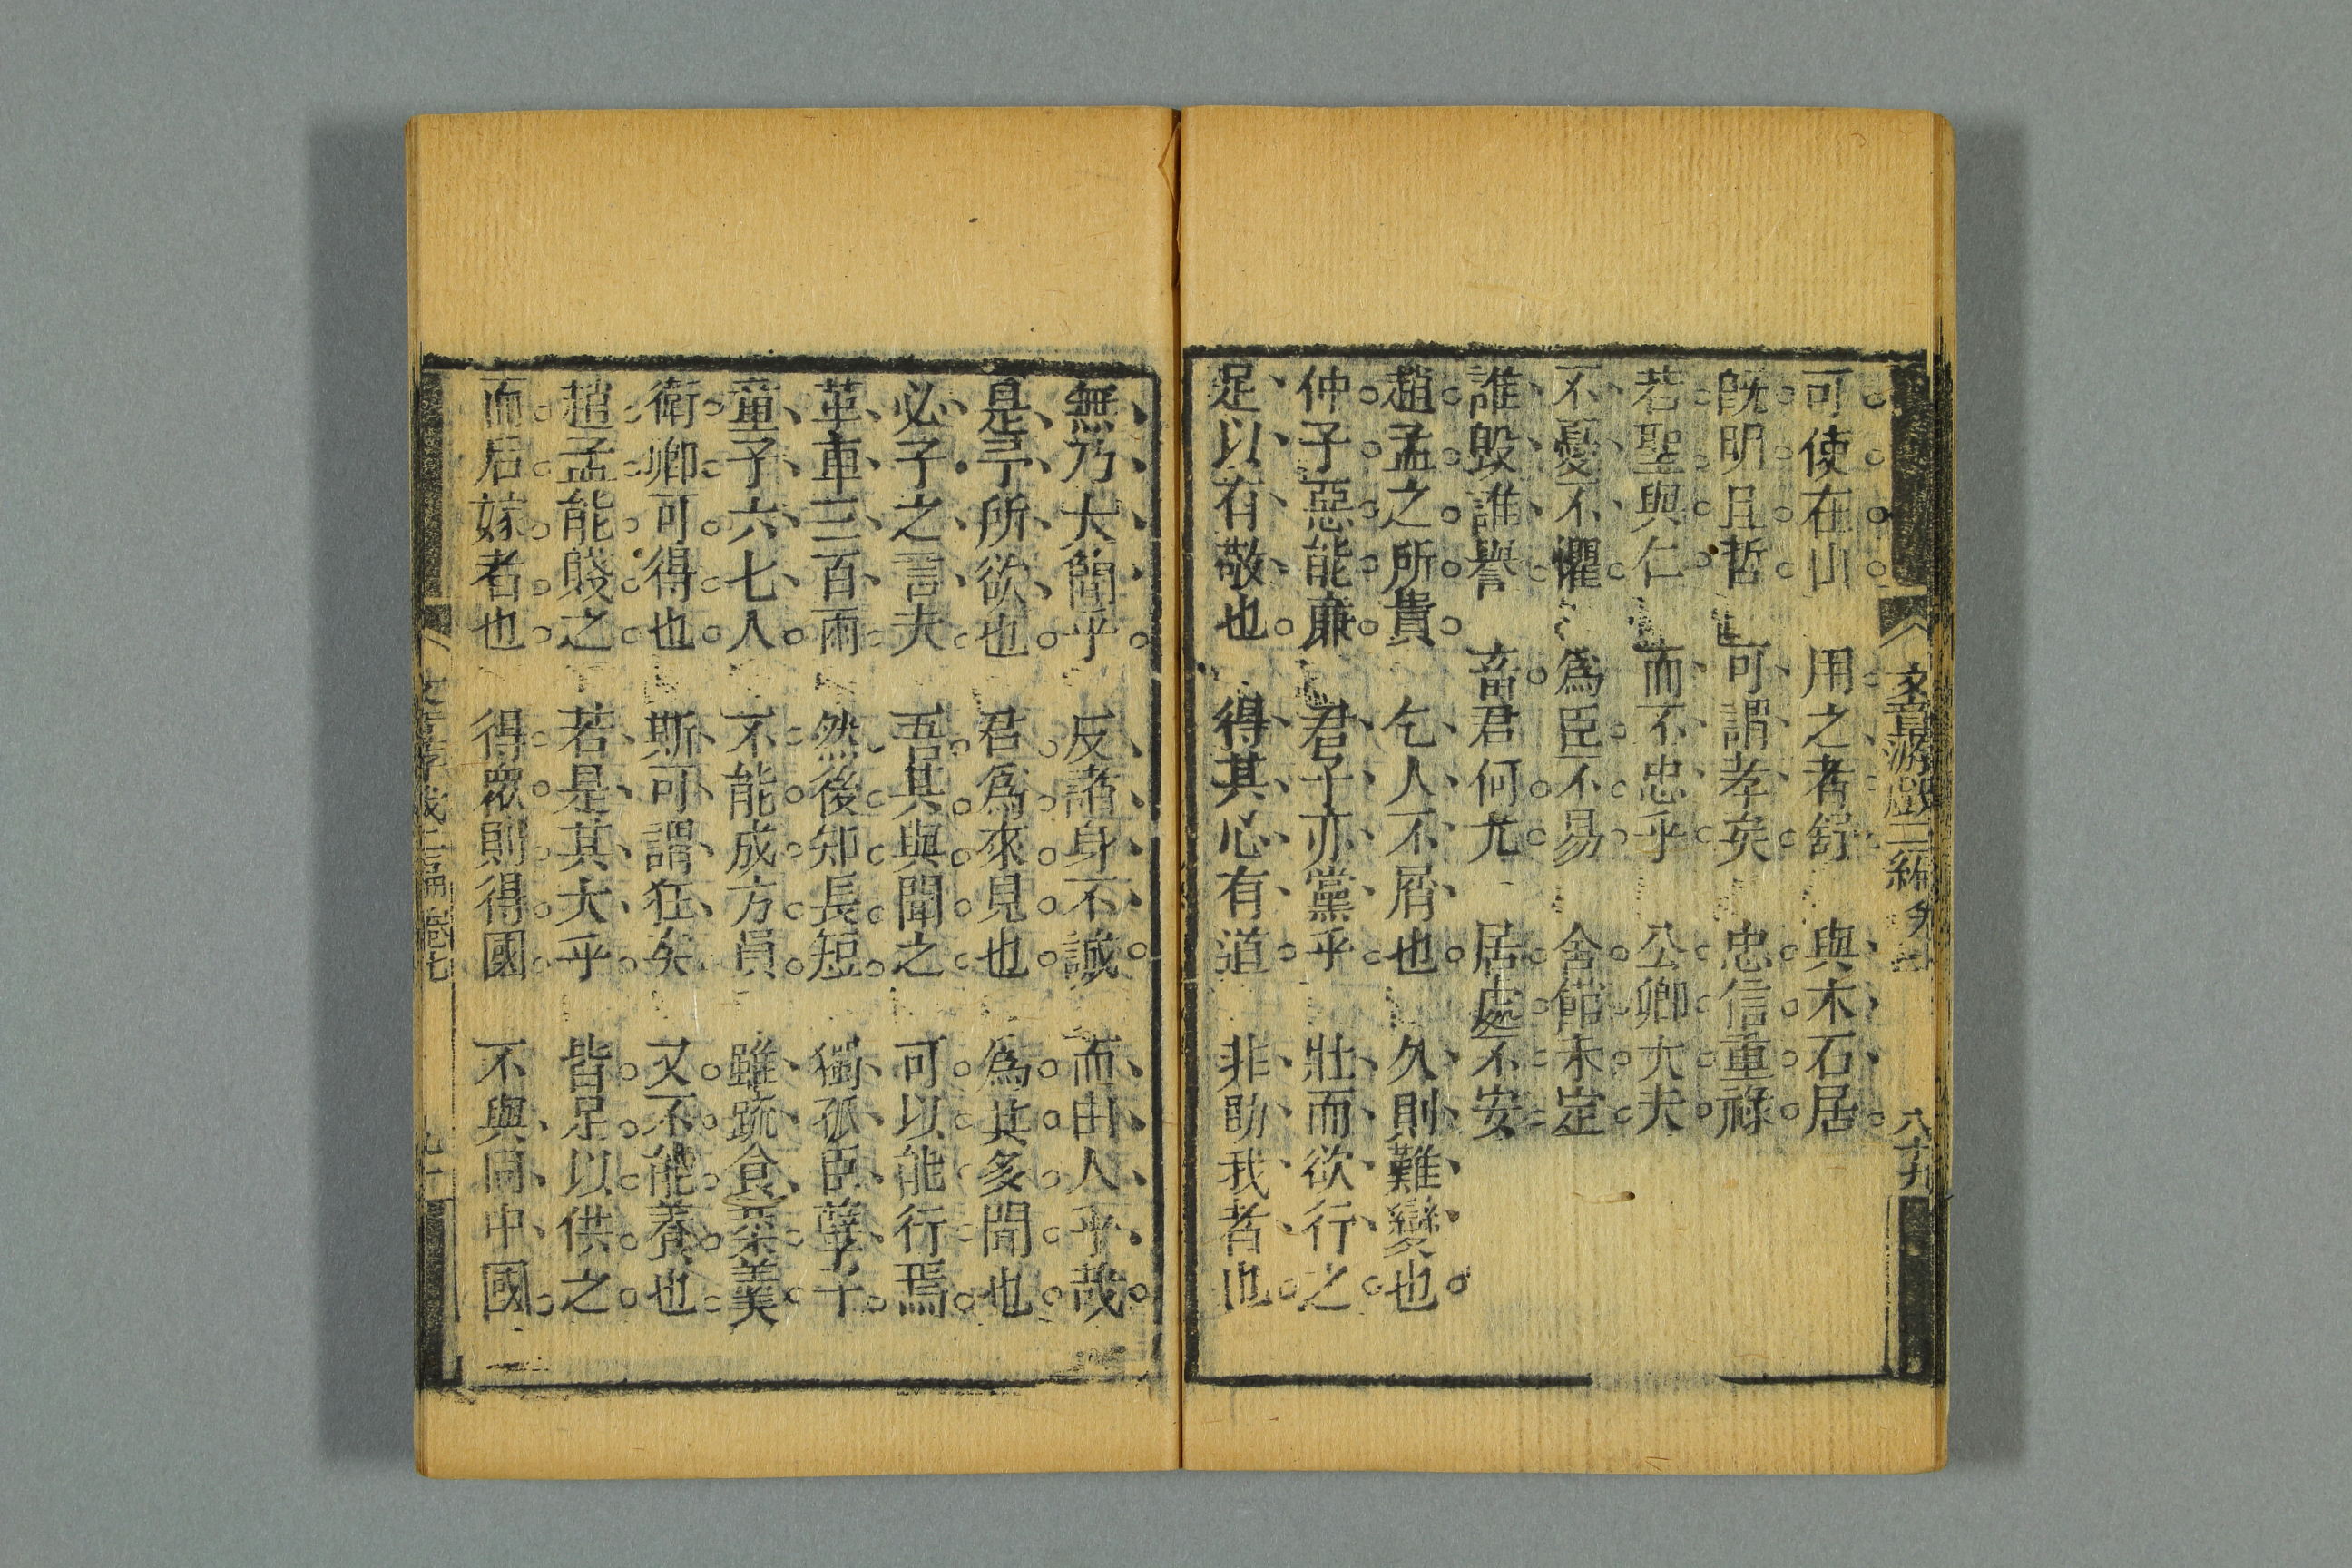 文章游戲二編
八十九
可使在山　用之者舒　與木石居
既明且哲　可謂孝矣　忠信重祿
若聖與仁　而不忠乎　公卿大夫
不憂不懼　爲臣不易　舍館未定
誰毀誰譽　畜君何尤　居處不安
趙孟之所貴　乞人不屑也　久則難變也
仲子惡能廉　君子亦黨乎　壯而欲行之
足以有敬也　得其心有道　非助我者也
無乃大簡乎　反諸身不誠　而由人乎哉
是予所欲也　君爲來見也　爲其多聞也
必子之言夫　吾其與聞之　可以能行焉
革車三百兩　然後知長短　獨孤臣孽子
童子六七人　不能成方員　雖疏食菜羹
衛卿可得也　斯可謂狂矣　又不能養也
趙孟能賤之　若是其大乎　皆足以供之
而后嫁者也　得眾則得國　不與同中國